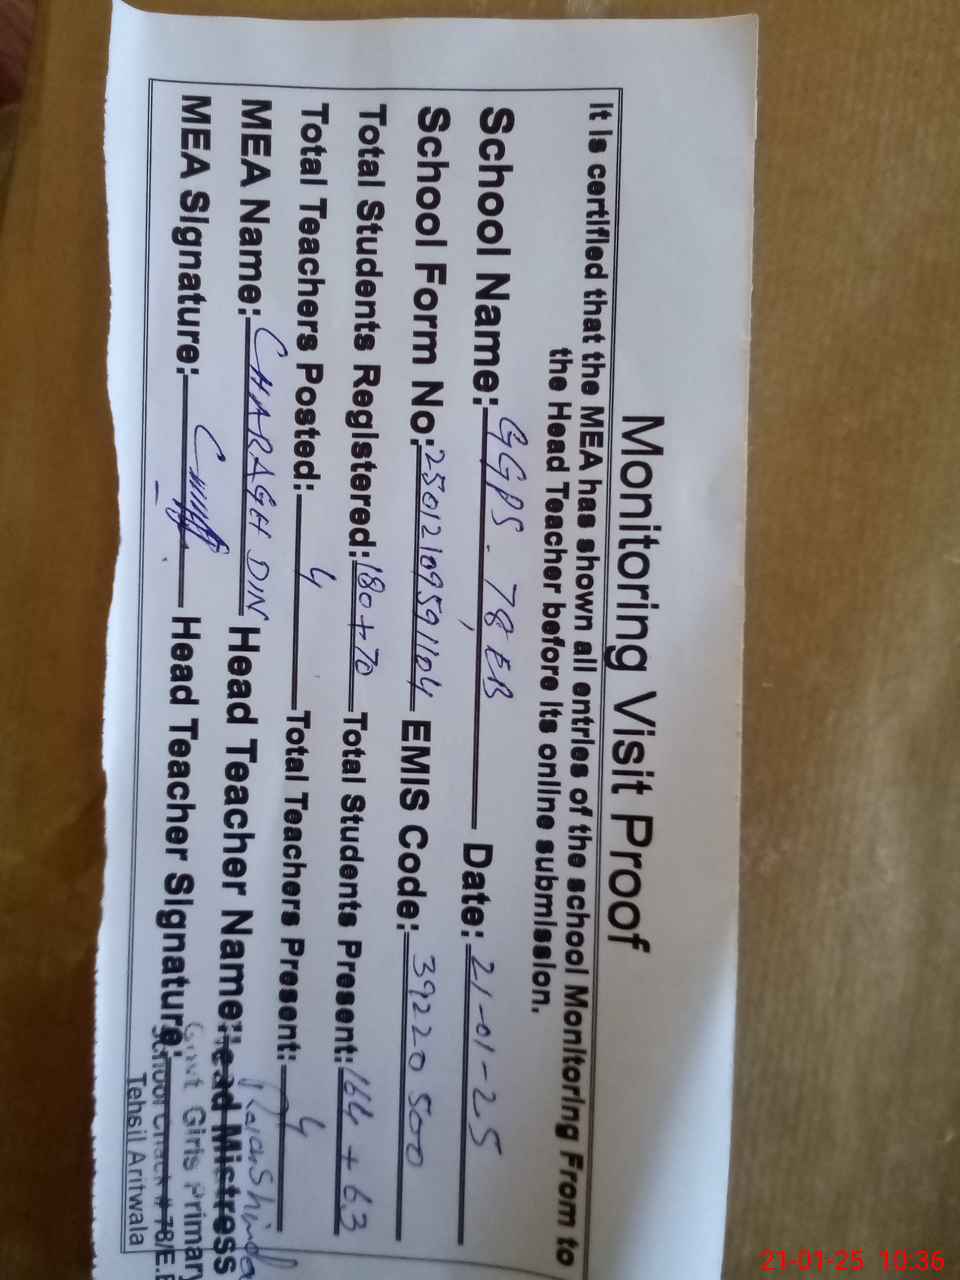 Monitoring Visit Proof
It is certified that the MEA has shown all entries of the school Monitoring From to
the Head Teacher before its online submission.
School Name: GGPS - 78 EB Date: 21-01-25
School Form No: 25012109591104 EMIS Code: 39220500
Total Students Registered: 180+70 Total Students Present: 164+63
Total Teachers Posted: 4 Total Teachers Present: 4
MEA Name: CHARAGH DIN Head Teacher Name:
MEA Signature: Head Teacher Signature:
Head Mistress
Govt Girls Primary
School Chack # 78/E.B
Tehsil Arifwala
21-01-25 10:36